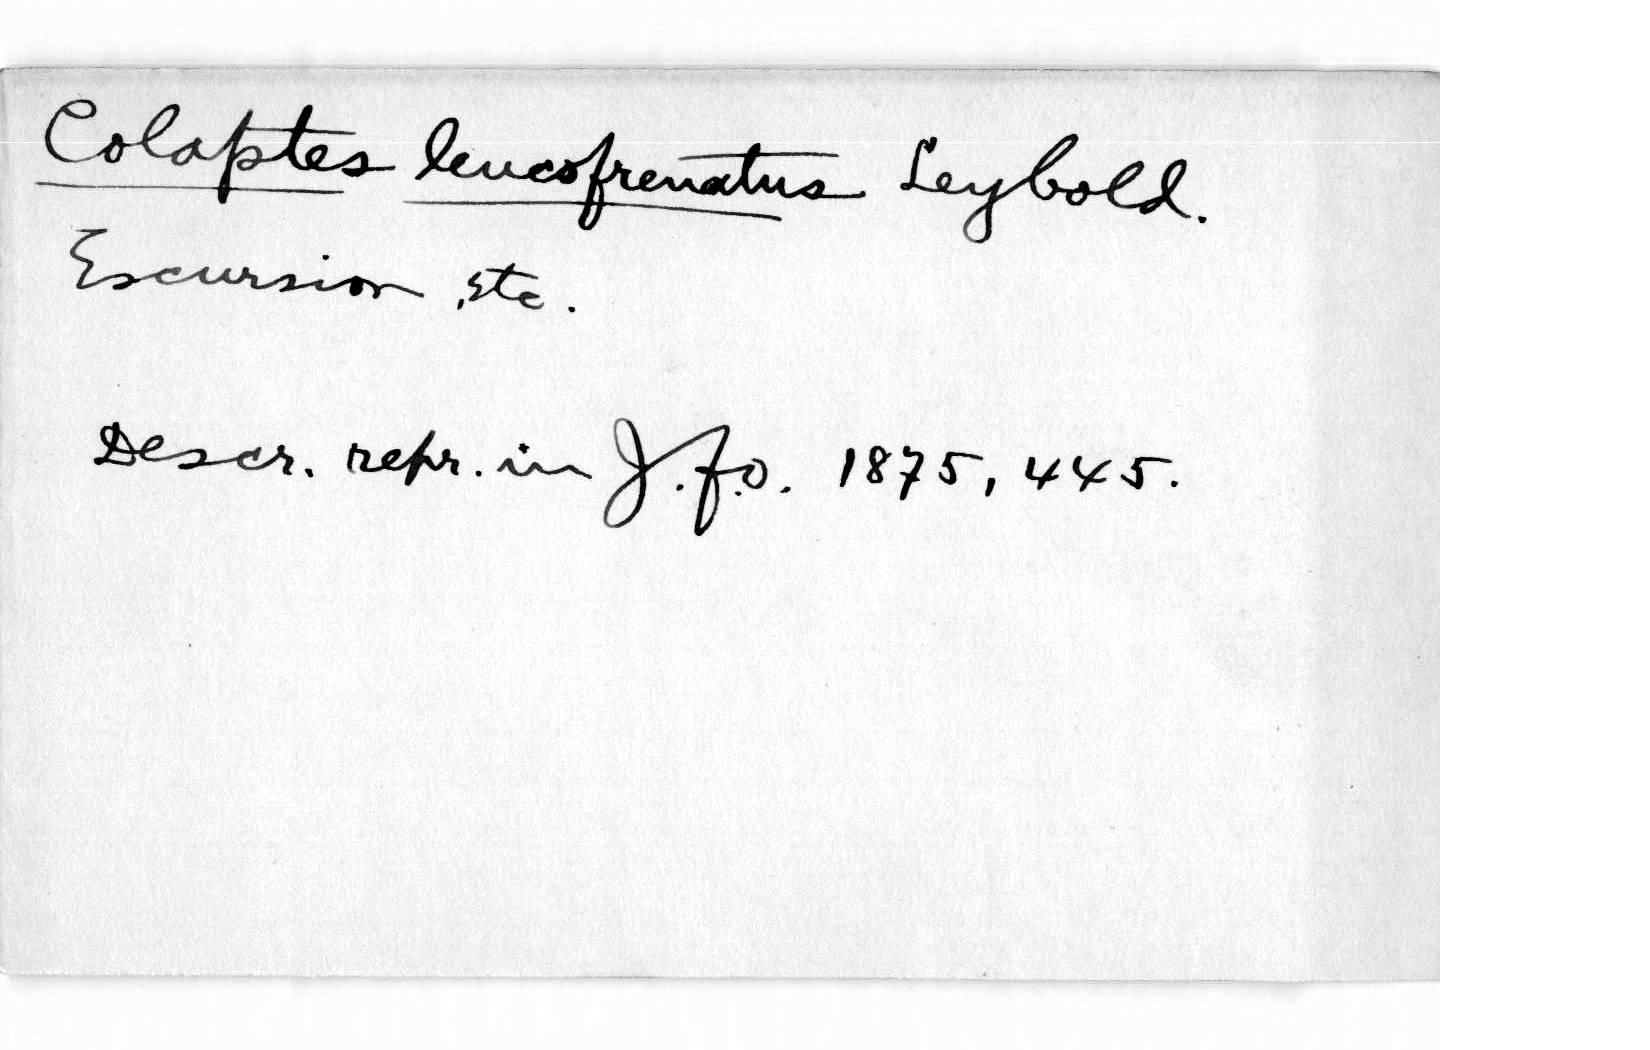 Colaptes leucofrenatus Leybold.
Escursion, etc.
Descr. repr. in J.f.O. 1875, 445.